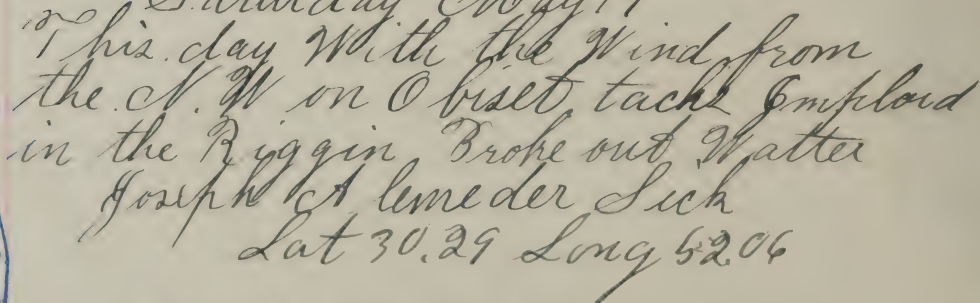 Saturday May 17
This day With the Wind from
the N. W on Obiset tacks Imploid
in the Riggin Broke out Watter
Joseph Alemeder Sick
Lat 30.29 Long 52.06